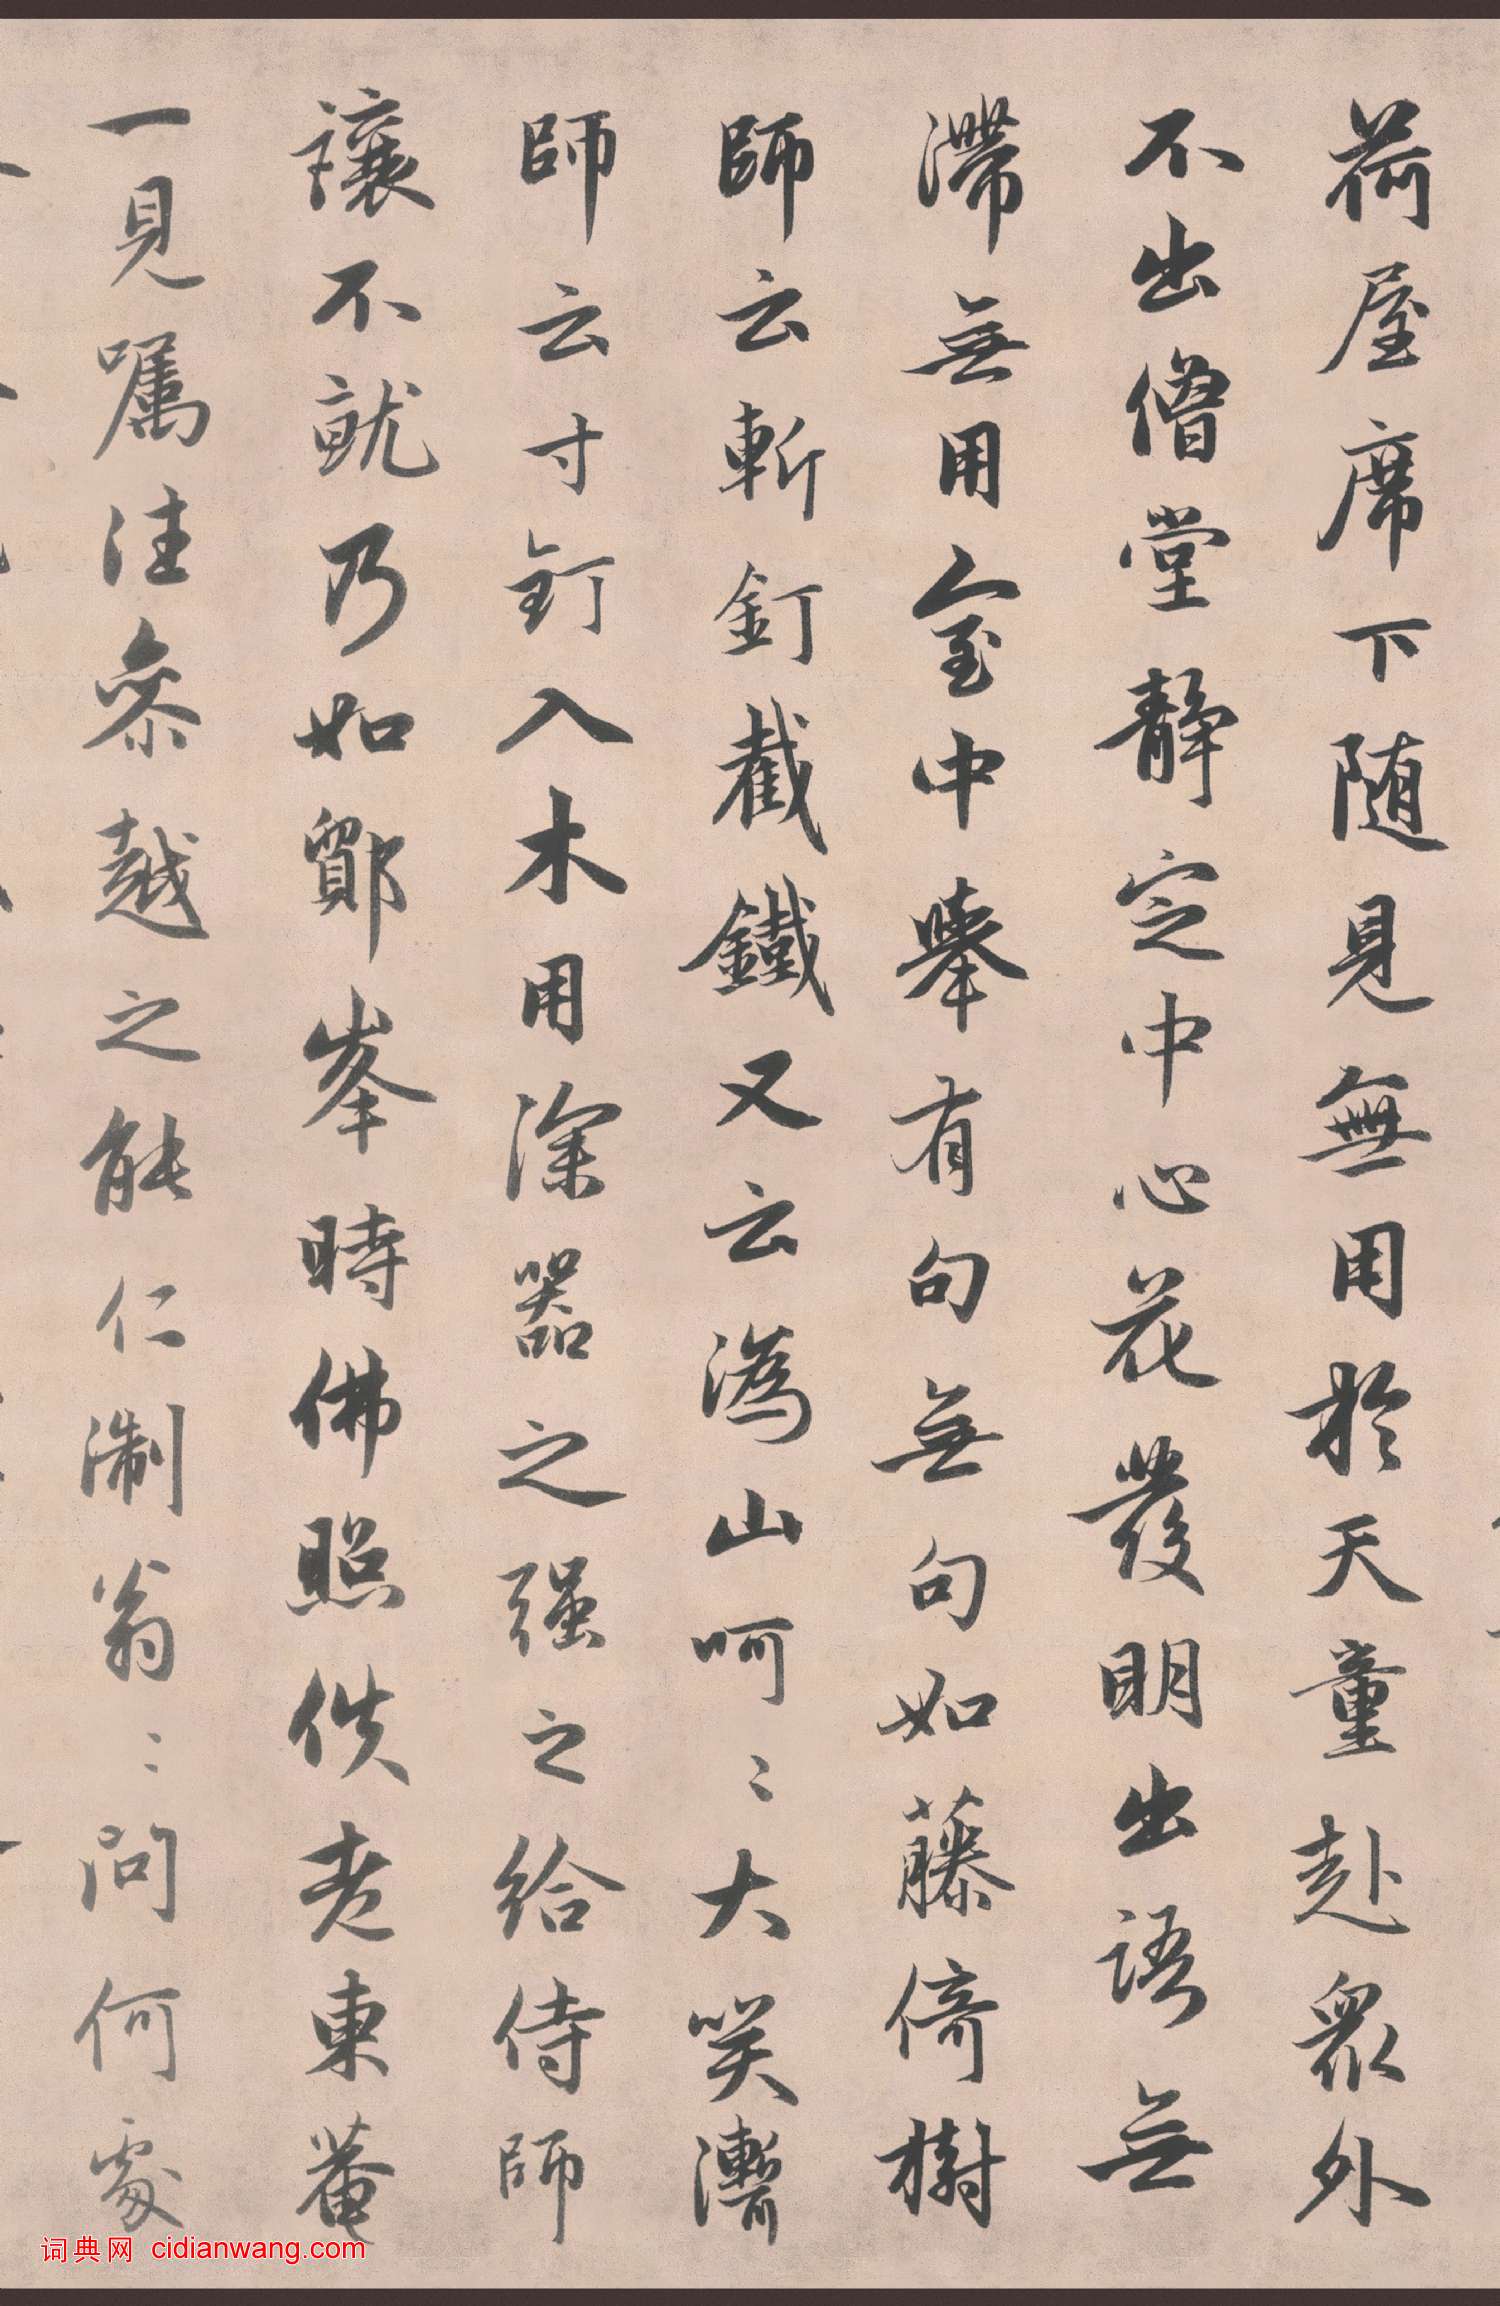 荷屋席下随見無用於天童赴衆外
不出僧堂靜定中心花發明出語無
滯無用室中舉有句無句如藤倚樹
師云斬釘截鐵又云溈山呵〻大笑漸
師云寸釘入木用深器之强之給侍師
讓不就乃如鄮峯時佛照佚老東菴
一見嘱注參越之能仁淛翁〻問何處
词典网 cidianwang.com